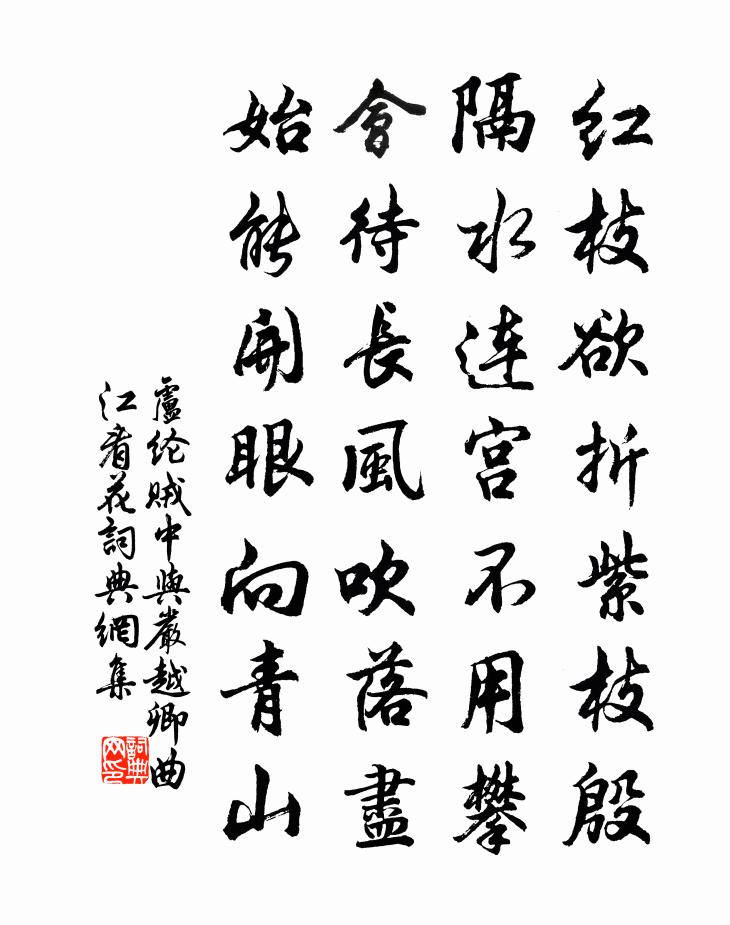 红枝欲折紫枝殷
隔水连宫不用攀
會待長風吹落盡
始能開眼向青山
盧纶贼中與嚴越卿曲
江看花詞典網集
詞典
网印